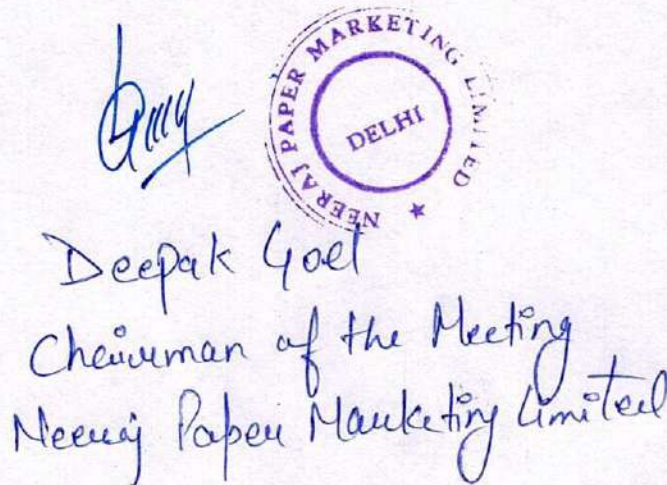 NEERAJ PAPER MARKETING LIMITED
DELHI
Deepak Goel
Chairman of the Meeting
Neeraj Paper Marketing Limited